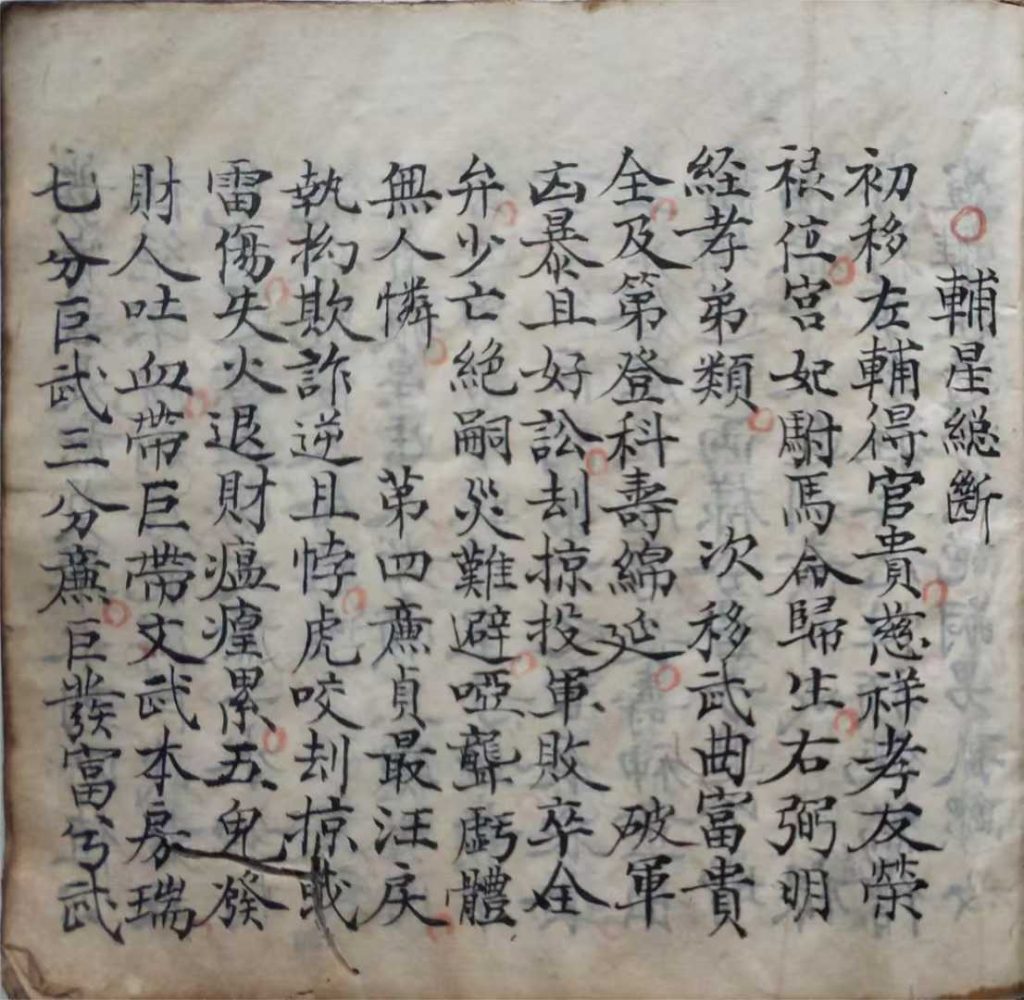 輔星総斷
初移左輔得官貴慈祥孝友榮
祿位宮妃駙馬命歸生右弼明
経孝弟類 次移武曲富貴
全及第登科壽綿延 破軍
凶暴且好訟刦掠投軍敗卒全
弁少亡絕嗣災難避啞聾虧體
無人憐 第四廉貞最汪戾
執拘欺詐逆且悖虎咬刦掠或
雷傷失火退財瘟㾮累五鬼發
財人吐血帶巨帶文武本房瑞
七分巨武三分廉巨發富兮武